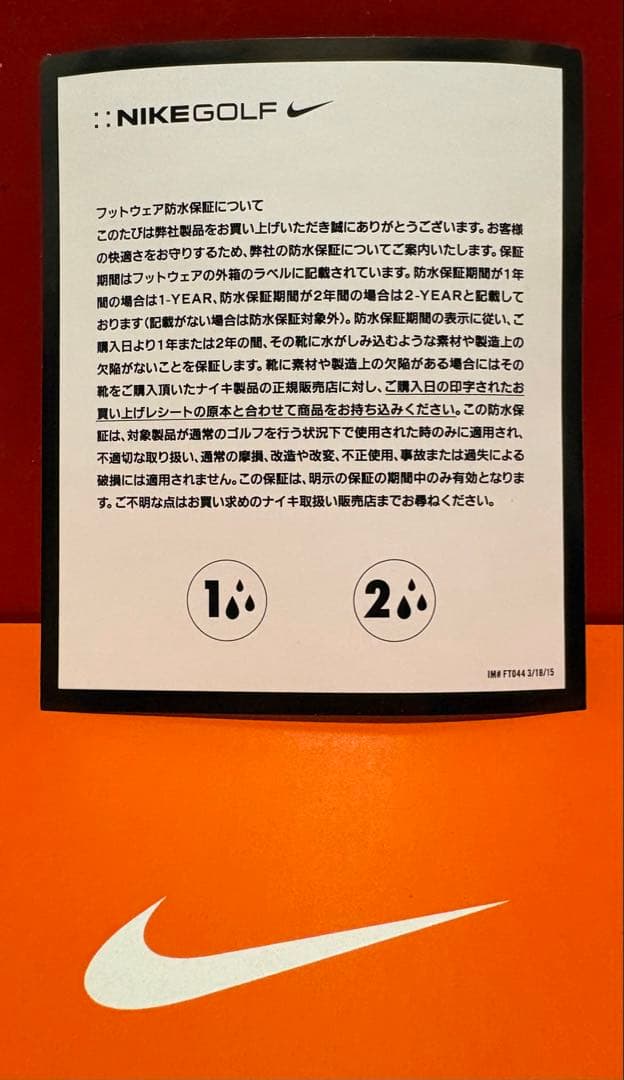 ::NIKEGOLF
フットウェア防水保証について
このたびは弊社製品をお買い上げいただき誠にありがとうございます。お客様
の快適さをお守りするため、弊社の防水保証についてご案内いたします。保証
期間はフットウェアの外箱のラベルに記載されています。防水保証期間が1年
間の場合は1-YEAR、防水保証期間が2年間の場合は2-YEARと記載して
おります（記載がない場合は防水保証対象外）。防水保証期間の表示に従い、ご
購入日より1年または2年の間、その靴に水がしみ込むような素材や製造上の
欠陥がないことを保証します。靴に素材や製造上の欠陥がある場合にはその
靴をご購入頂いたナイキ製品の正規販売店に対し、ご購入日の印字されたお
買い上げレシートの原本と合わせて商品をお持ち込みください。この防水保
証は、対象製品が通常のゴルフを行う状況下で使用された時のみに適用され、
不適切な取り扱い、通常の摩損、改造や改変、不正使用、事故または過失による
破損には適用されません。この保証は、明示の保証の期間中のみ有効となりま
す。ご不明な点はお買い求めのナイキ取扱い販売店までお尋ねください。
1 2
IM# FT044 3/18/15